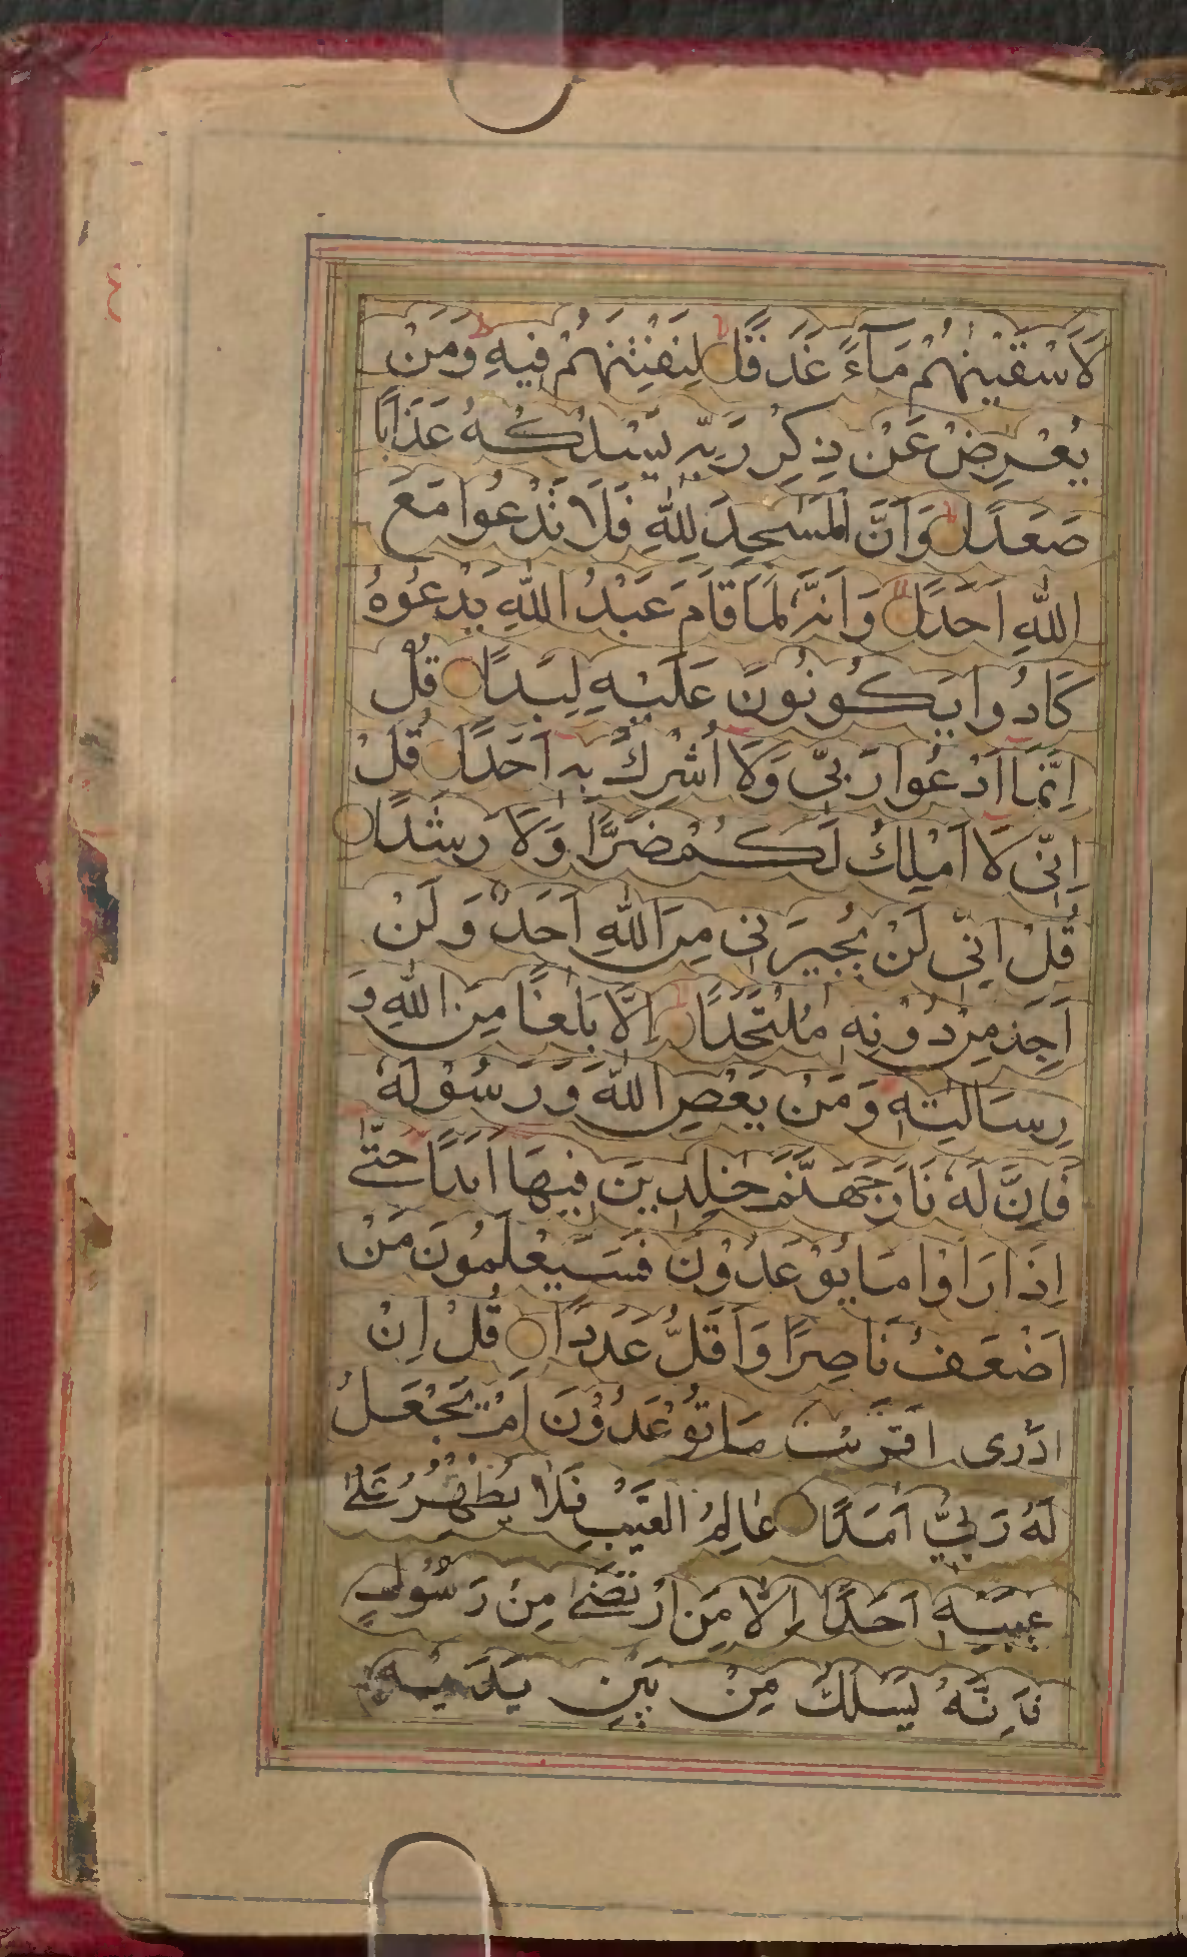 لَاَسْقَيْنٰهُمْ مَآءً غَدَقًا لِنَفْتِنَهُمْ فِيهِ وَمَنْ
يُعْرِضْ عَنْ ذِكْرِ رَبِّهٖ يَسْلُكْهُ عَذَابًا
صَعَدًا وَاَنَّ الْمَسٰجِدَ لِلّٰهِ فَلَا تَدْعُوا مَعَ
اللّٰهِ اَحَدًا وَاَنَّهٗ لَمَّا قَامَ عَبْدُ اللّٰهِ يَدْعُوهُ
كَادُوا يَكُونُونَ عَلَيْهِ لِبَدًا قُلْ
اِنَّمَا اَدْعُوا رَبّٖى وَلَا اُشْرِكُ بِهٖ اَحَدًا قُلْ
اِنّٖى لَا اَمْلِكُ لَكُمْ ضَرًّا وَلَا رَشَدًا
قُلْ اِنّٖى لَنْ يُجِيرَنٖى مِنَ اللّٰهِ اَحَدٌ وَلَنْ
اَجِدَ مِنْ دُوْنِهٖ مُلْتَحَدًا اِلَّا بَلٰغًا مِنَ اللّٰهِ وَ
رِسَالٰتِهٖ وَمَنْ يَعْصِ اللّٰهَ وَرَسُوْلَهٗ
فَاِنَّ لَهٗ نَارَ جَهَنَّمَ خٰلِدٖينَ فٖيهَا اَبَدًا حَتّٰى
اِذَا رَاَوْا مَا يُوْعَدُوْنَ فَسَيَعْلَمُونَ مَنْ
اَضْعَفُ نَاصِرًا وَاَقَلُّ عَدَدًا قُلْ اِنْ
اَدْرٖى اَقَرٖيبٌ مَا تُوْعَدُوْنَ اَمْ يَجْعَلُ
لَهُ رَبّٖى اَمَدًا عَالِمُ الْغَيْبِ فَلَا يُظْهِرُ عَلٰى
غَيْبِهٖ اَحَدًا اِلَّا مَنِ ارْتَضٰى مِنْ رَسُولٍ
فَاِنَّهُ يَسْلُكُ مِنْ بَيْنِ يَدَيْهِ